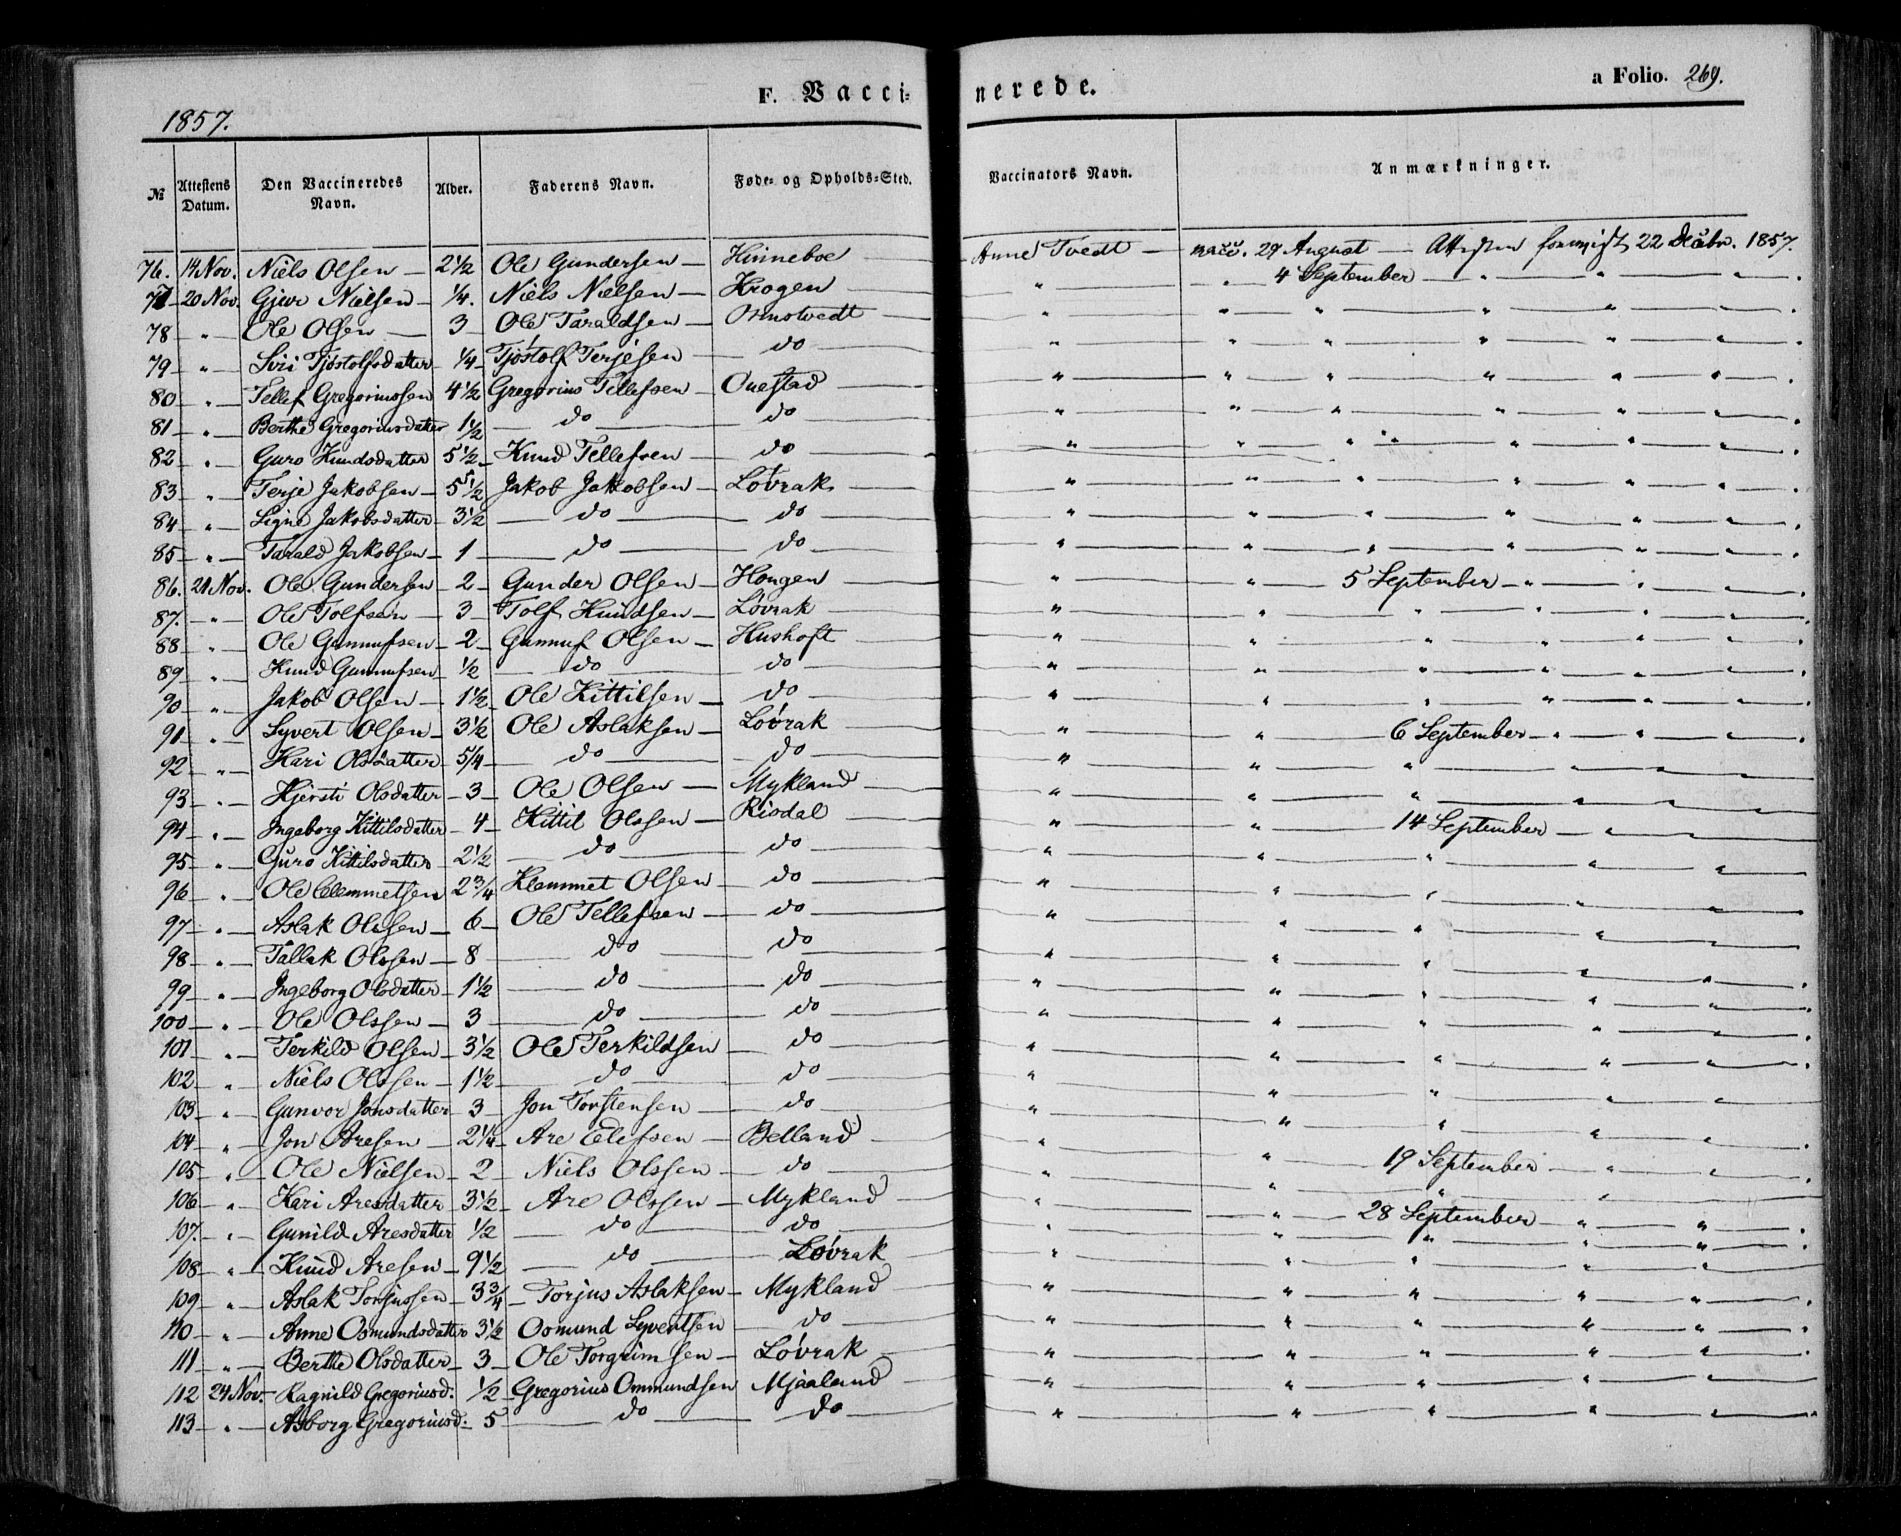 1857.
F. Vacci=
nerede.
a Folio. 269.
№ Attestens Datum. Den Vaccineredes Navn. Alder. Faderens Navn. Føde- og Opholds-Sted. Vaccinators Navn. Anmærkninger.
76. 14 Nov. Niels Olsen — 2 1/2 Ole Gundersen — Hinneboe — Anne Tvedt — vacc. 29 August — Attesten 22 Decbr. 1857.
77 — 20 Nov. Gjur Nielsen — 1/4. Niels Nielsen — Krogen — " — " — 4 September — " — " — "
78 — " — Ole Olsen — 3 — Ole Taraldsen — Omstvedt — " — " — " — " — " — "
79 — " — Siri Tjøstolfsdatter — 1/4 — Tjøstolf Terjesen — do — " — " — " — " — " — "
80 — " — Tellef Gregoriussen 4 1/2 Gregorius Tellefsen — Ouestad — " — " — " — " — " — "
81 — " — Berthe Gregoriusdatter 1 1/2 — do — do — " — " — " — " — " — "
82 — " — Guro Knudsdatter 5 1/2 — Knud Tellefsen — do — " — " — " — " — " — "
83 — " — Terje Jakobsen — 5 1/2 Jakob Jakobsen — Løvrak — " — " — " — " — " — "
84 — " — Signe Jakobsdatter — 3 1/2 — do — do — " — " — " — " — " — "
85 — " — Tarald Jakobsen — 1 — do — do — " — " — " — " — " — "
86. 21 Nov. Ole Gundersen — 2 — Gunder Olsen — Hougen — " — " — 5 September — " — " — "
87. — " — Ole Tolfsen — 3 — Tolf Knudsen — Løvrak — " — " — " — " — " — "
88 — " — Ole Gunnufsen — 2 — Gunnuf Olsen — Hushoft — " — " — " — " — " — "
89 — " — Knud Gunnufsen — 1/2 — do — do — " — " — " — " — " — "
90 — " — Jakob Olsen — 1 1/2 — Ole Kittilsen — do — " — " — " — " — " — "
91 — " — Syvert Olsen — 3 1/2 — Ole Aslaksen — Løvrak — " — " — 6 September — " — " — "
92 — " — Kari Olsdatter 5/4 — do — do — " — " — " — " — " — "
93 — " — Kjersti Olsdatter — 3 — Ole Olsen — Mykland — " — " — " — " — " — "
94 — " — Ingeborg Kittilsdatter — 4 — Kittil Olssen — Risdal — " — " — 14 September — " — "
95 — " — Guro Kittilsdatter 2 1/2 — do — do — " — " — " — " — "
96 — " — Ole Clemmetsen 2 3/4 Klemmet Olsen — do — " — " — " — " — "
97 — " — Aslak Olssen — 6 — Ole Tellefsen — do — " — " — " — " — "
98 — " — Tallak Olssen — 8 — do — do — " — " — " — " — "
99 — " — Ingeborg Olsdatter — 1 1/2 — do — do — " — " — " — " — "
100 — " — Ole Olssen — 3 — do — do — " — " — " — " — "
101 — " — Terkild Olsen — 3 1/2 — Ole Terkildsen — do — " — " — " — " — "
102 — " — Niels Olssen — 1 1/2 — do — do — " — " — " — " — "
103 — " — Gunvor Jonsdatter — 3 — Jon Torstensen — do — " — " — " — " — "
104 — " — Jon Aresen — 2 1/4 — Are Elefsen — Belland — " — " — 19 September — " — "
105 — " — Ole Nielsen — 2 — Niels Olssen — do — " — " — " — " — "
106 — " — Kari Aresdatter — 3 1/2 — Are Olssen — Mykland — " — " — 28 September — " — "
107. — " — Gunild Aresdatter 1/2 — do — do — " — " — " — " — "
108 — " — Knud Aresen — 9 1/2 — do — Løvrak — " — " — " — " — "
109 — " — Aslak Torjussen — 3 3/4 — Torjus Aslaksen — Mykland — " — " — " — " — "
110 — " — Anne Osmundsdatter 3 1/2 Osmund Syvertsen — do — " — " — " — " — "
111 — " — Berthe Olsdatter — 3 — Ole Torgrimsen — Løvrak — " — " — " — " — "
112 24 Nov. Ragnild Gregoriusd. 1/2 Gregorius Ommundsen Mjaaland — " — " — " — " — "
113 — " — Asborg Gregoriusd. — 5 — do — do — " — " — " — " — "